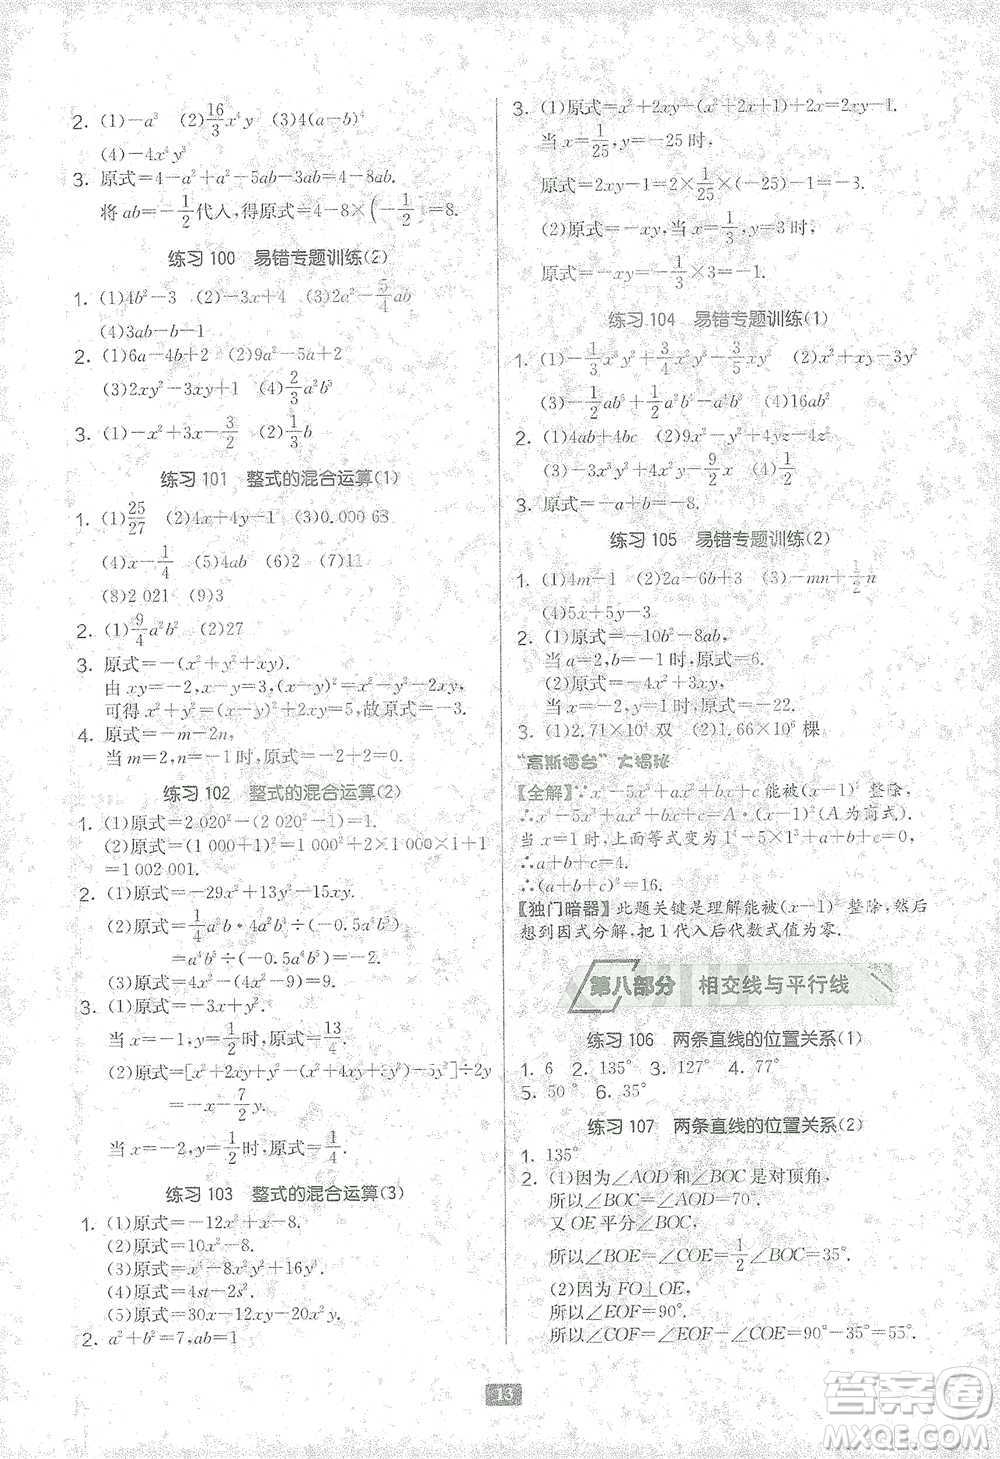 2. (1)-a³ (2)16/3x⁴y (3)4(a-b)⁴
(4)-4x⁴y³
3. 原式=4-a²+a²-5ab-3ab=4-8ab.
将ab=-1/2代入,得原式=4-8×(-1/2)=8.
练习100 易错专题训练(2)
1. (1)4b²-3 (2)-3x+4 (3)2a²-5/4ab
(4)3ab-b-1
2. (1)6a-4b+2 (2)9a²
(3)2xy²-3xy+1 (4)2/3a²b⁵
3. (1)-x²+3x-3/2 (2)1/3b
练习101 整式的混合运算(1)
1. (1)25/27 (2)4x+4y-1 (3)0.000 63
(4)x-1/4 (5)4ab (6)-4 (7)1
(8)2 021 (9)3
2. (1)9/4a²b² (2)27
3. 原式=-(x²+y²+xy).
由xy=-2,x-y=3,(x-y)²=
可得x²+y²=(x-y)²+2xy=5,故原式=-3.
4. 原式=-m-2n,
当m=2,n=-1时,原式=-2+2=0.
练习102 整式的混合运算(2)
1. (1)原式=2 020²-(2 020²-1)=1.
(2)原式=(1 000+1)²=1 000²+2×1 000×1+1
=1 002 001.
2. (1)原式=-29x²+13y²-15xy.
(2)原式=
(3)原式=4x²-9-(4x²-9)=9.
3. (1)原式=-3x+y².
当x=-1,y=1/2时,原式=13/4.
(2)原式=
=-x-7/2y.
当x=-2,y=1/2时,原式=1/4.
练习103 整式的混合运算(3)
1. (1)原式=-12x³+x-8.
(2)原式=10x²-9.
(3)原式=x²-8xy²+16y⁴.
(4)原式=4st-2s².
(5)原式=30x-12xy-20x²y.
2. a²+b²=7,ab=1
3. (1)原式=x²+2xy-(x²-2x+1)+2x=2xy-1.
当x=1/25,y=-25时,
原式=2xy-1=2×1/25×(-25)-1=-3.
(2)原式=-xy,当x=1/3,y=3时,
原式=-xy=-1/3×3=-1.
练习104 易错专题训练(1)
1. (1)-1/3x³y²+3/4x²y²-3/5xy² (2)x²+xy-3y²
(3)-1/2ab⁵+1/2a²b⁴-a³b³ (4)16ab²
2. (1)4ab+4bc (2)9x²-y²+4yz-4z²
(3)-16x²+8xy-9/2y² (4)-1/2
3. 原式=-a+b=-8.
练习105 易错专题训练(2)
1. (1)4m-1 (2)2a-6b+3 (3)-mn+1/2n
(4)5x+5y-3
2. (1)原式=-10b²-8ab,
当a=2,b=-1时,原式=6.
(2)原式=-4x²+3xy,
当x=2,y=-1时,原式=-22.
3. (1)2.71×10⁴双 (2)1.66×10⁶棵
“高斯擂台”大揭秘
【全解】∵x⁴-5x³+ax²+bx+c能被(x-1)²整除,
∴x⁴-5x³+ax²+bx+c=A·(x-1)²(A为商式)
当x=1时,上面等式变为1⁴-5×1³+a+b+c=0,
∴a+b+c=4.
∴(a+b+c)²=16.
【独门暗器】此题关键是理解能被(x-1)²整除,然后
想到因式分解,把1代入后代数式值为零.
第八部分 相交线与平行线
练习106 两条直线的位置关系(1)
1. 6 2. 135° 3. 127° 4. 77°
5. 50° 6. 35°
练习107 两条直线的位置关系(2)
1. 135°
2. (1)因为∠AOD和∠BOC是对顶角,
所以∠BOC=∠AOD=70°.
又OE平分∠BOC,
所以∠BOE=∠COE=1/2∠BOC=35°.
(2)因为FO⊥OE,
所以∠EOF=90°.
所以∠COF=∠EOF-∠COE=90°-35°=55°
13
答案卷
MXQE.COM